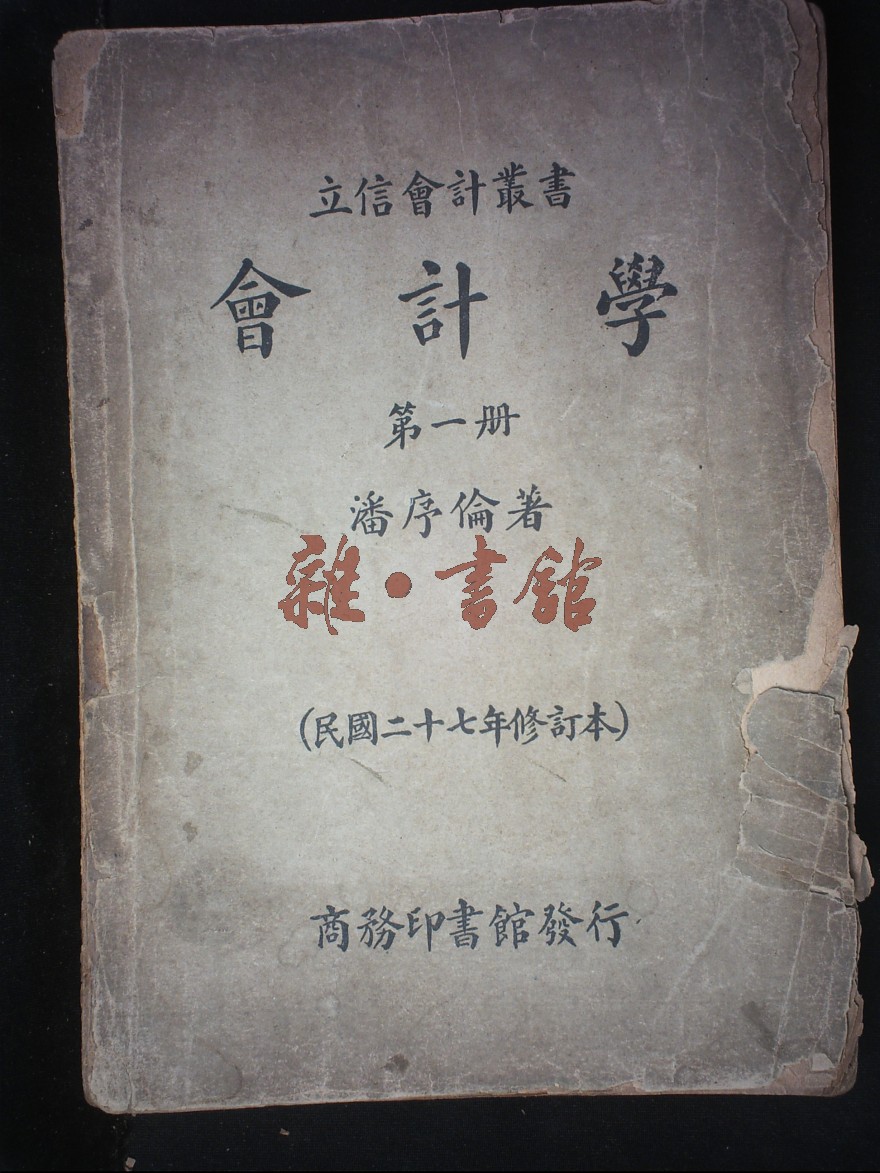 立信會計叢書
會計學
第一册
潘序倫著
雜·書館
(民國二十七年修訂本)
商務印書館發行